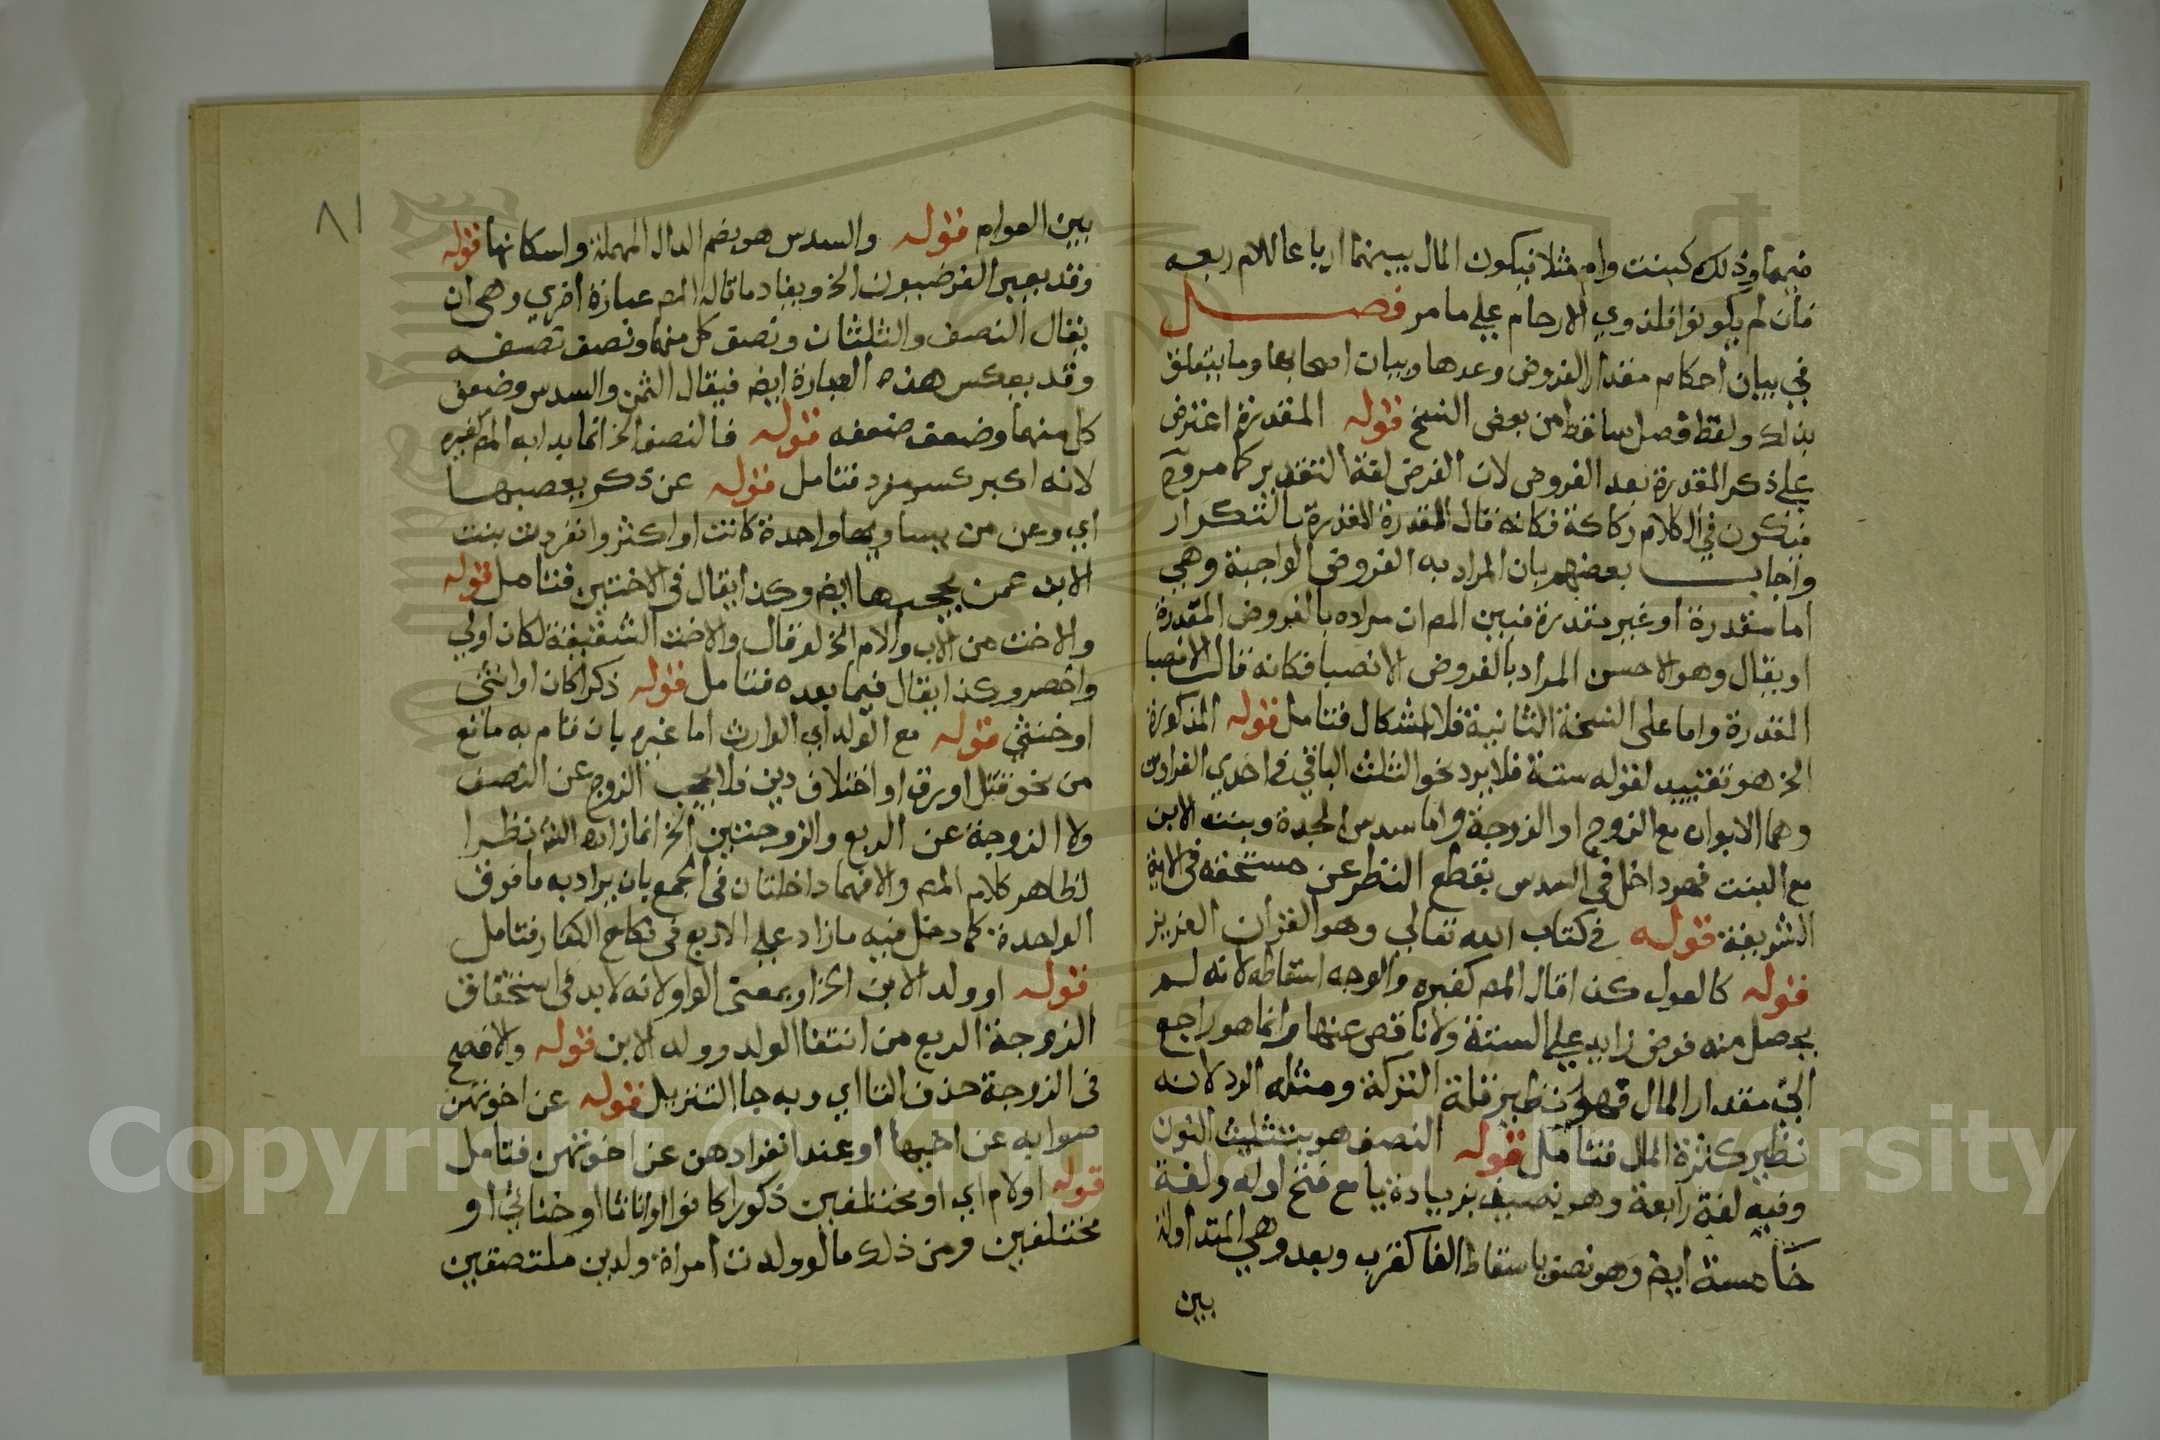 فيهما وذلك كبنت وام مثلا فيكون المال بينهما ارباعا للام ربعه
فان لم يكونوا فلذوي الارحام علي ما مر فصل
في بيان احكام مقدار الفروض وعدها وبيان اصحابها وما يتعلق
بذلك ولفظ فصل ساقط من بعض النسخ قوله المقدرة اعترض
علي ذكر المقدرة بعد الفروض لان الفرض لغة التقدير كما مر وح
فيكون في الكلام ركاكة فكانه قال المقدرة المقدرة بالتكرار
واجاب بعضهم بان المراد به الفروض الواجبة وهي
اما مقدرة او غير مقدرة فبين المص ان مراده بالفروض المقدرة
او يقال وهو الاحسن المراد بالفروض الانصبا فكانه قال الانصبا
المقدرة واما على النسخة الثانية فلا اشكال فتامل قوله المذكورة
الخ هو تقييد لقوله ستة فلا يرد نحو الثلث الباقي في احدي الغراوين
وهما الابوان مع الزوج او الزوجة واما سدس الجدة وبنت الابن
مع البنت فهو داخل في السدس بقطع النظر عن مستحقه في الاية
الشريفة قوله في كتاب الله تعالي وهو القرأن العزيز
قوله كالعول كذا قال المص كغيره والوجه اسقاطه لانه لم
يحصل منه فرض زايد علي الستة ولا ناقص عنها وانما هو راجع
الي مقدار المال فهو نظير قلة التركة ومثله الرد لانه
نظير كثرة المال فتامل قوله النصف هو بتثليث النون
وفيه لغة رابعة وهو نصيف بزيادة يا مع فتح اوله ولغة
خامسة ايض وهو نصف باسقاط الفا كقرب وبعد وهي المتداولة
بين
٨١
بين العوام قوله والسدس هو بضم الدال المهملة واسكانها قوله
وقد يعبر الفرضيون الخ ويفاد ما قاله المص عبارة اخري وهي ان
يقال النصف والثلثان ونصف كل منهما ونصف نصفه
وقد يعكس هذه العبارة ايض فيقال الثمن والسدس وضعف
كل منهما وضعف ضعفه قوله فالنصف الخ انما بدا به المص كغيره
لانه اكبر كسر مفرد فتامل قوله عن ذكر يعصبها
اي وعن من يساويها واحدة كانت او اكثر وانفردت بنت
الابن عمن يحجبها ايض وكذا يقال في الاختين فتامل قوله
والاخت من الاب والام الخ لو قال والاخت الشقيقة لكان اولي
واخصر وكذا يقال فيما بعده فتامل قوله ذكرا كان او انثى
او خنثي قوله مع الولد اي الوارث اما غيره بان قام به مانع
من نحو قتل او رق او اختلاف دين فلا يحجب الزوج عن النصف
ولا الزوجة عن الربع والزوجتين الخ انما زاده الش نظرا
لظاهر كلام المص والا فهما داخلتان في الجمع بان يراد به ما فوق
الواحدة كما دخل فيه ما زاد علي الاربع في نكاح الكفار فتامل
قوله او ولد الابن الخ او بمعنى الواو لانه لا بد في استحقاق
الزوجة الربع من انتفا الولد وولد الابن قوله والافصح
في الزوجة حذف التا اي وبه جا التنزيل قوله عن اخوتهن
صوابه عن اخيها او عند انفرادهن عن اخوتهن فتامل
قوله او لام اي او مختلفين ذكورا كانوا او اناثا او خناثي او
مختلفين ومن ذلك ما لو ولدت امراة ولدين ملتصقين